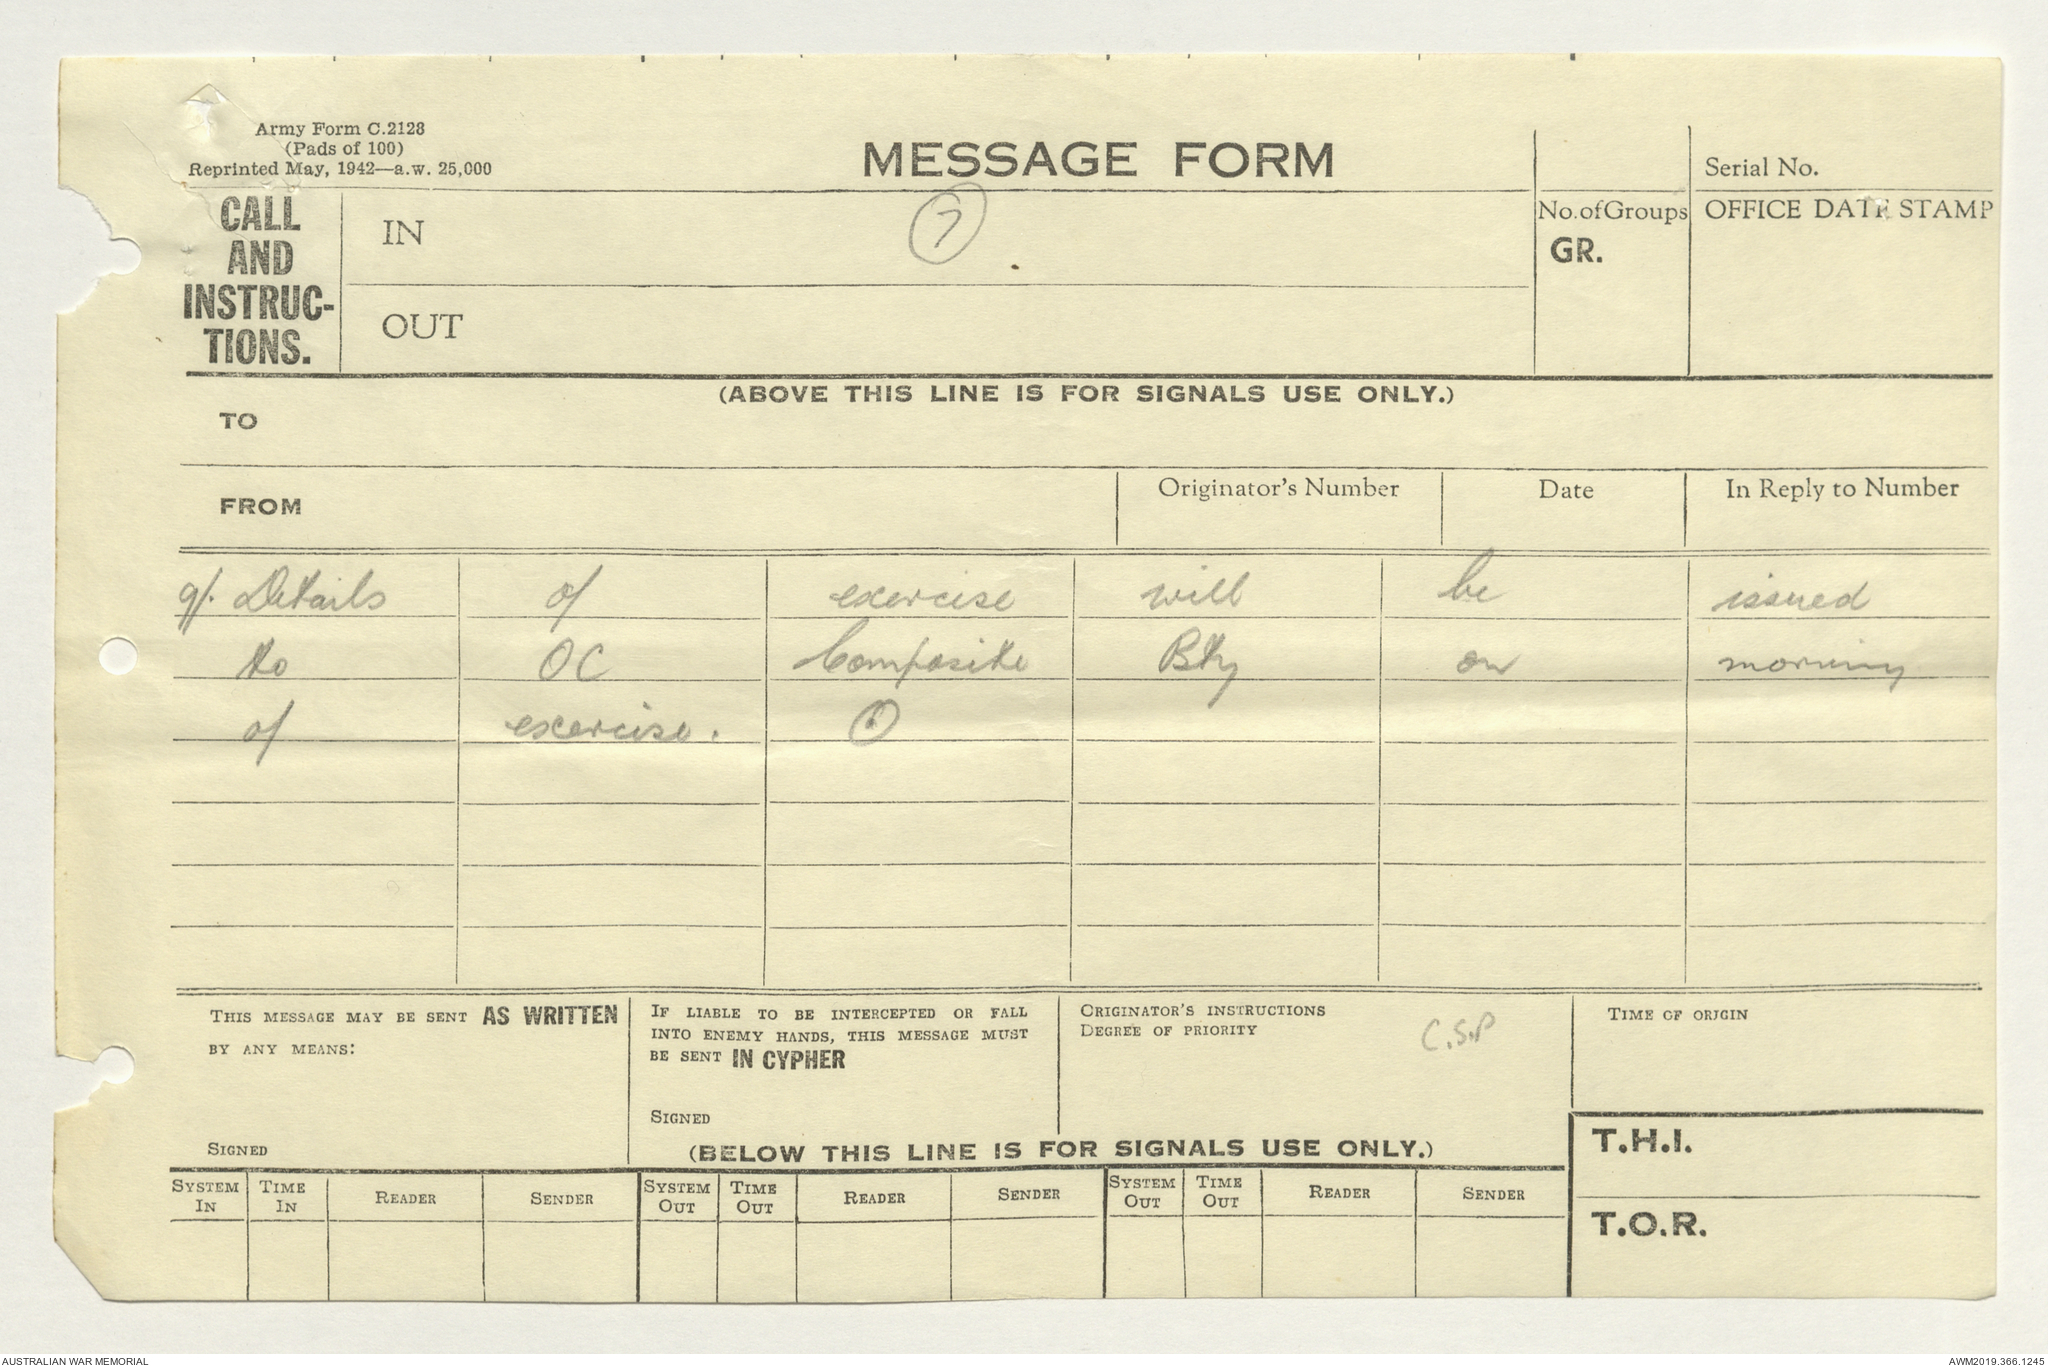 Army Form C.2128
(Pads of 100)
Reprinted May, 1942—a.w. 25,000
MESSAGE FORM
Serial No.
CALL
AND
INSTRUC-
TIONS.
IN
7
No. of Groups
GR.
OFFICE DATE STAMP
OUT
(ABOVE THIS LINE IS FOR SIGNALS USE ONLY.)
TO
FROM
Originator's Number
Date
In Reply to Number
9/. Details of exercise will be issued
to OC Composite Bty on morning
of exercise. ⊙
THIS MESSAGE MAY BE SENT AS WRITTEN
BY ANY MEANS:
SIGNED
IF LIABLE TO BE INTERCEPTED OR FALL
INTO ENEMY HANDS, THIS MESSAGE MUST
BE SENT IN CYPHER
SIGNED
ORIGINATOR'S INSTRUCTIONS
DEGREE OF PRIORITY
C.S.P
TIME OF ORIGIN
(BELOW THIS LINE IS FOR SIGNALS USE ONLY.)
T.H.I.
T.O.R.
SYSTEM IN TIME IN READER SENDER SYSTEM OUT TIME OUT READER SENDER SYSTEM OUT TIME OUT READER SENDER
AUSTRALIAN WAR MEMORIAL
AWM2019.366.1245